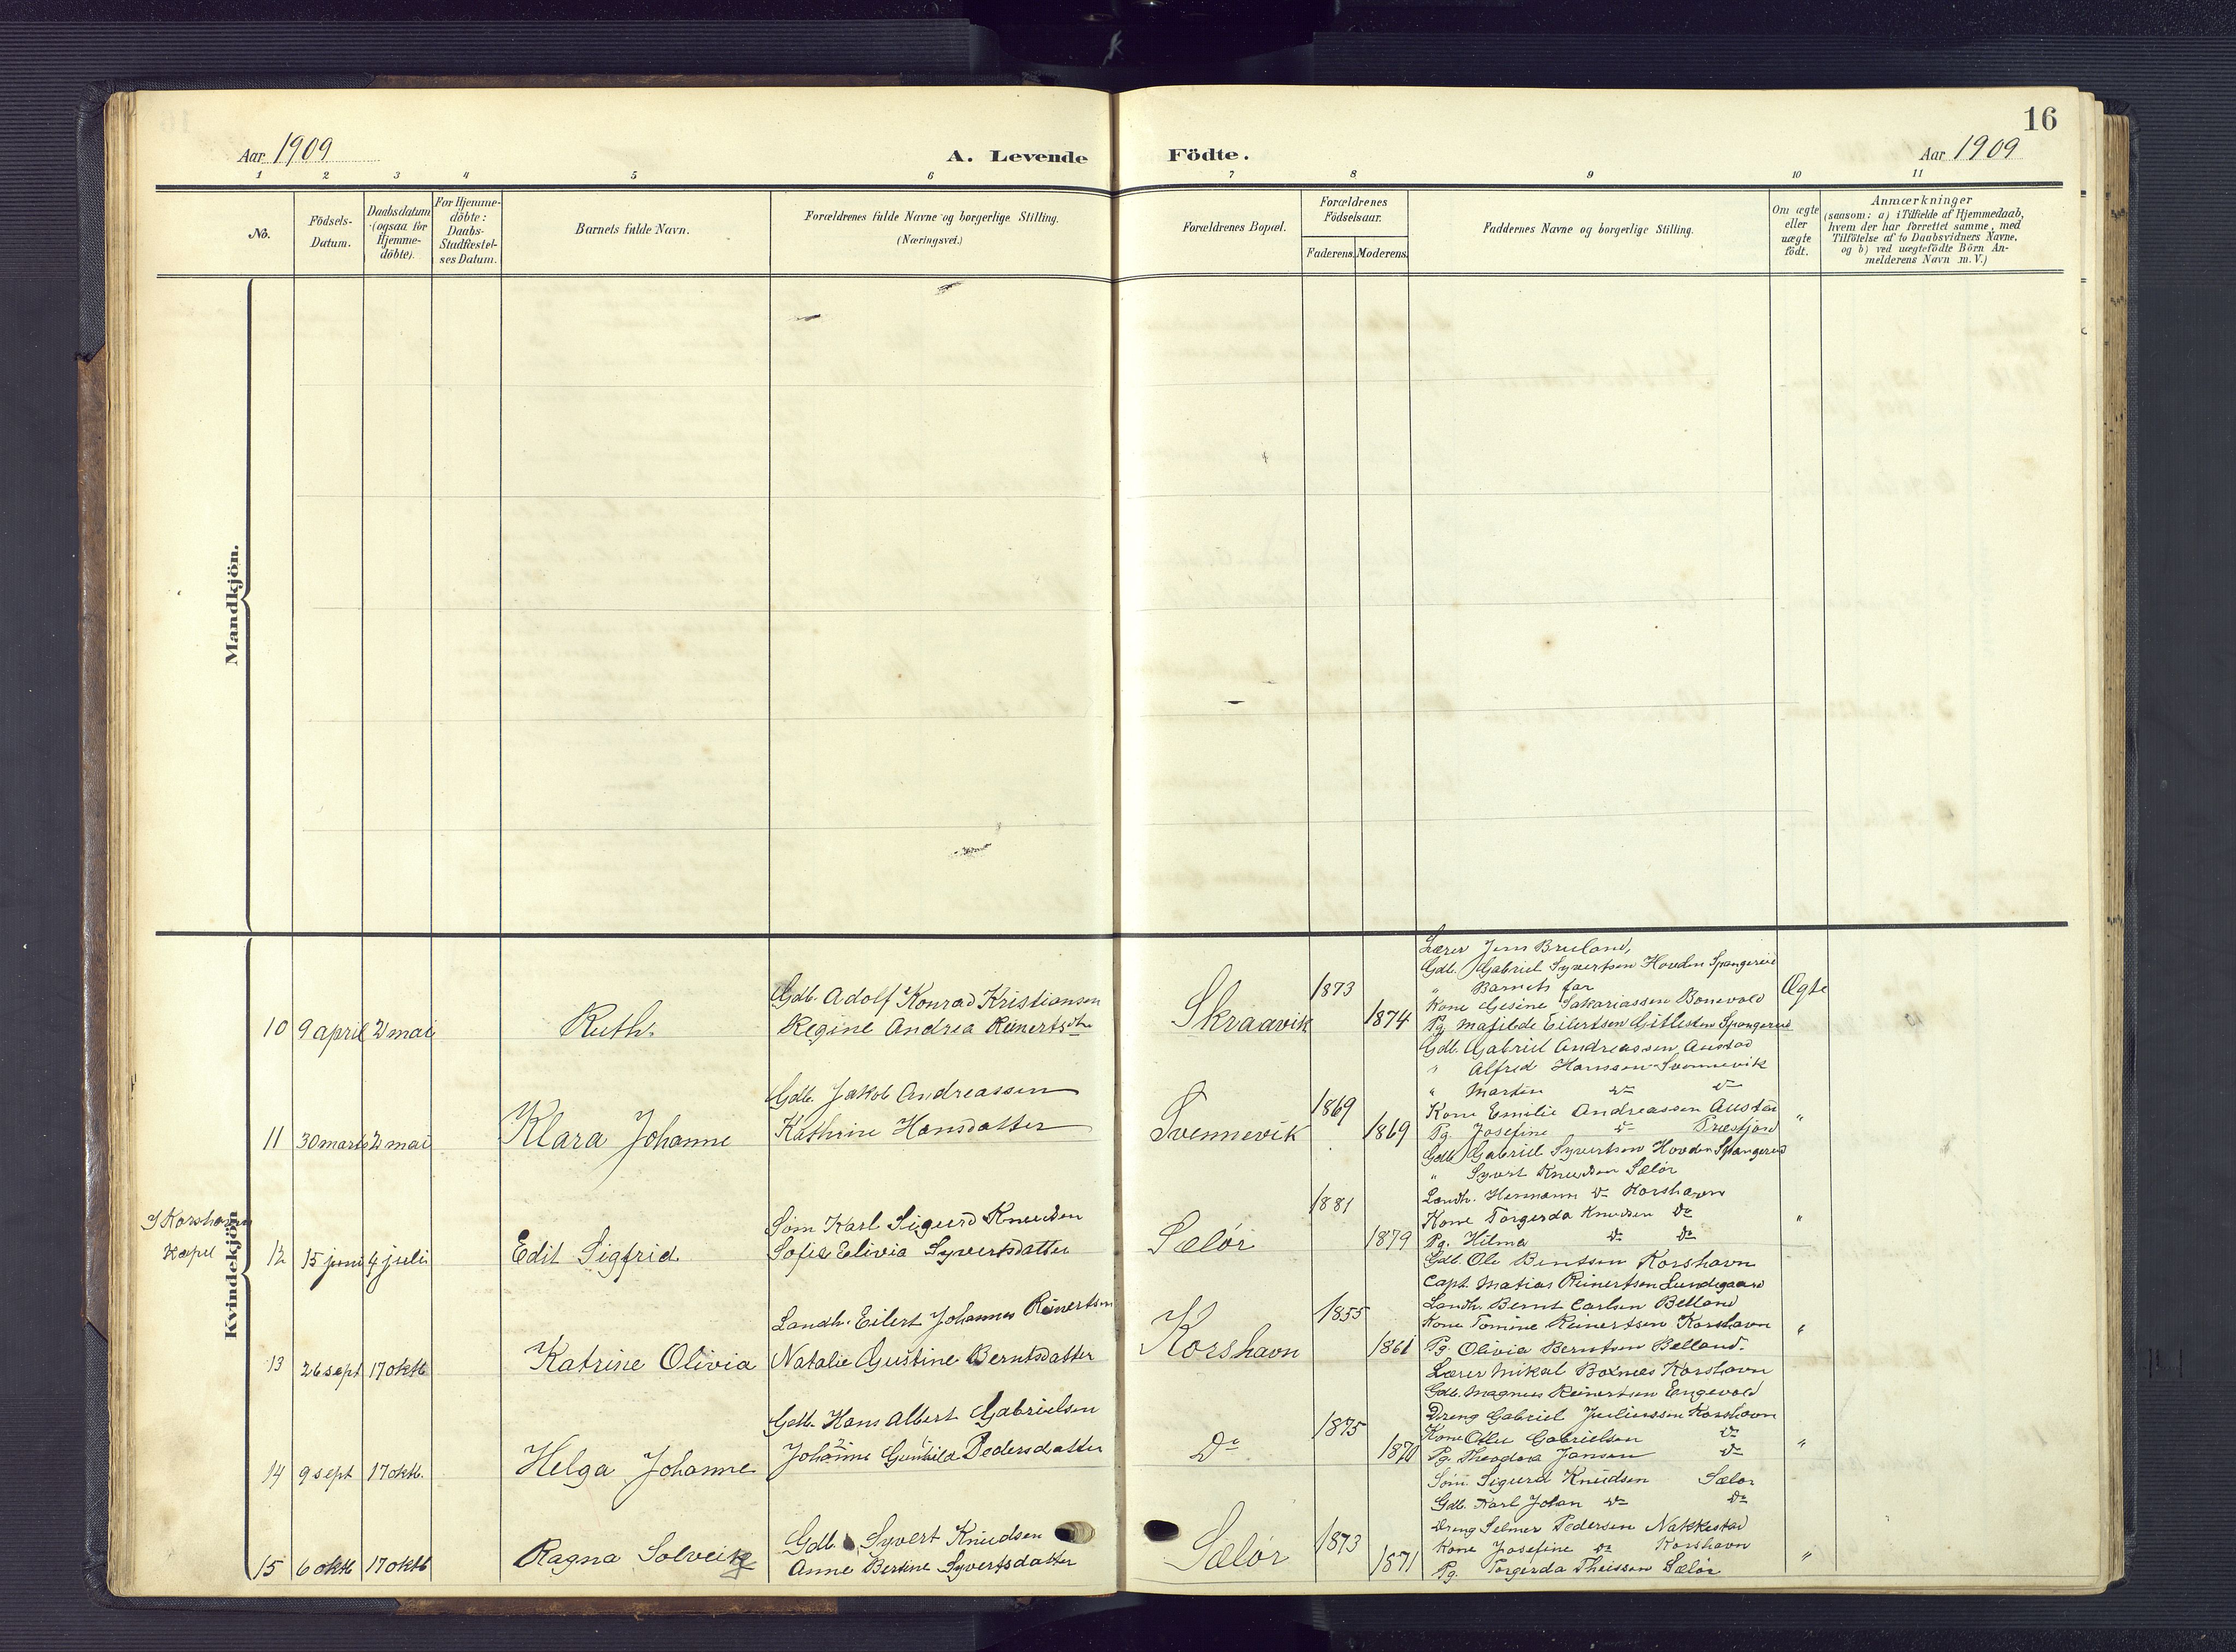 16
Aar 1909
A. Levende
Födte.
Aar 1909
1 2 3 4 5 6 7 8 9 10 11
No.
Födsels-
Datum.
Daabsdatum
(ogsaa for
Hjemme-
döbte).
For Hjemme-
döbte:
Daabs-
Stadfæstel-
ses Datum.
Barnets fulde Navn.
Forældrenes fulde Navne og borgerlige Stilling.
(Næringsvei.)
Forældrenes Bopæl.
Forældrenes
Födselsaar.
Faderens. Moderens.
Faddernes Navne og borgerlige Stilling.
Om ægte
eller
uægte
födt.
Anmærkninger
(saasom: a) i Tilfælde af Hjemmedaab,
hvem der har forrettet samme, med
Tilföielse af to Daabsvidners Navne,
og b) ved uægtefödte Börn An-
melderens Navn m. V.)
Mandkjön.
Kvindekjön
10 9 april 2 mai
Ruth.
Gdb. Adolf Konrad Kristiansen
Regine Andrea Reinertsdtr
Skraavik
1873
1874
Lærer Jens Bruland,
Gdb. Gabriel Syvertsen Hovden Spangereid
" Barnets far
Kone Gesine Sakariassen Bonevold
Pg. Matilde Eilertsen Gitlesten Spangereid
Ægte
11 30 marts 2 mai
Klara Johanne
Gdb. Jakob Andreassen
Kathrine Hansdatter
Svennevik
1869
1869
Gdb. Gabriel Andreassen Austad
" Alfred Hanssen Svennevik
" Martin Do Do
Kone Emilie Andreassen Austad
Pg. Josefine Do
"
I Korshavn
Kapel
12 15 juni 4 juli
Edit Sigfrid
Søm Karl Sigurd Knudsen
Sofie Elivia Syvertsdatter
Sælør
1881
1879
Gdb. Gabriel Syvertsen Hovden Spangereid
" Syvert Knudsen Sælør
Landh. Hermann Do Korshavn
Kone Torgerda Knudsen Do
Pg. Hilma Do Do
"
13 26 sept 17 oktb
Katrine Olivia
Landh. Eilert Johannes Reinertsen
Natalie Gustine Berntsdatter
Korshavn
1855
1861
Gdb. Ole Bentsen Korshavn
Capt. Matias Reinertsen Lundegaard
Landh. Bernt Carlsen Belland
Kone Tomine Reinertsen Korshavn
Pg. Olivia Berntsen Belland.
"
14 9 sept 17 oktb.
Helga Johanne
Gdb. Hans Albert Gabrielsen
Johanne Gunhild Pedersdatter
Do
1875
1870
Lærer Mikal Boxnæs Korshavn
Gdb. Magnus Reinertsen Engevold
Dreng Gabriel Juliussen Korshavn
Kone Gabrielsen Do
Pg. Theodora Jansen Do
"
15 6 oktb 17 oktb
Ragna Solveig
Gdb. Syvert Knudsen
Anne Bertine Syvertsdatter
Sælør
1873
1871
Søm Sigurd Knudsen Sælør
Gdb. Karl Johan Do Do
Dreng Selmer Pedersen Nakkestad
Kone Josefine Do Korshavn
Pg. Torgerda Theissen Sælør
"